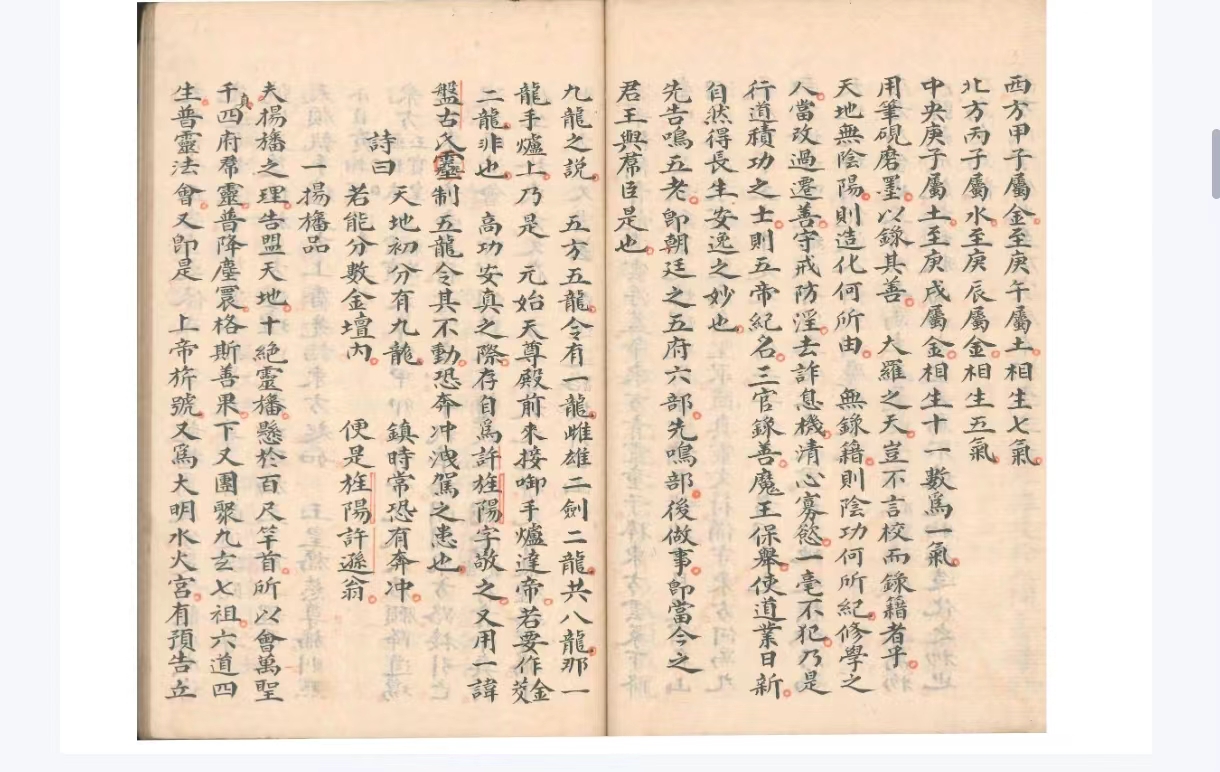 西方甲子屬金至庚午屬土相生七氣
北方丙子屬水至庚辰屬金相生五氣
中央庚子屬土至庚戌屬金相生十一數為一氣
用筆硯磨墨以錄其善 大羅之天豈不言校而錄籍者乎
天地無陰陽則造化何所由 無錄籍則陰功何所紀修學之
人當改過遷善守戒防淫去詐息機清心寡慾一毫不犯乃是
行道積功之士則五帝紀名三官錄善魔王保舉使道業日新
自然得長生安逸之妙也
先告鳴五老即朝廷之五府六部先鳴部後做事即當今之
君王與蓆臣是也
九龍之說 五方五龍令有一龍雌雄二劍二龍共八龍那一
龍手爐上乃是 元始天尊殿前來接啣手爐達帝若要作金
二龍非也 高功安真之際存自為許旌陽字敬之又用一諱
盤古氏靈制五龍令其不動恐奔冲洩駕之患也
詩曰 天地初分有九龍 鎮時常恐有奔冲
若能分數金壇內 便是旌陽許遜翁
一揚旛品
夫揚旛之理告盟天地十絕靈旛懸於百尺竿首所以會萬聖
千真四府羣靈普降塵寰格斯善果下又團聚九玄七祖六道四
生普靈法會又即是 上帝旂號又為大明水火宮有預告立